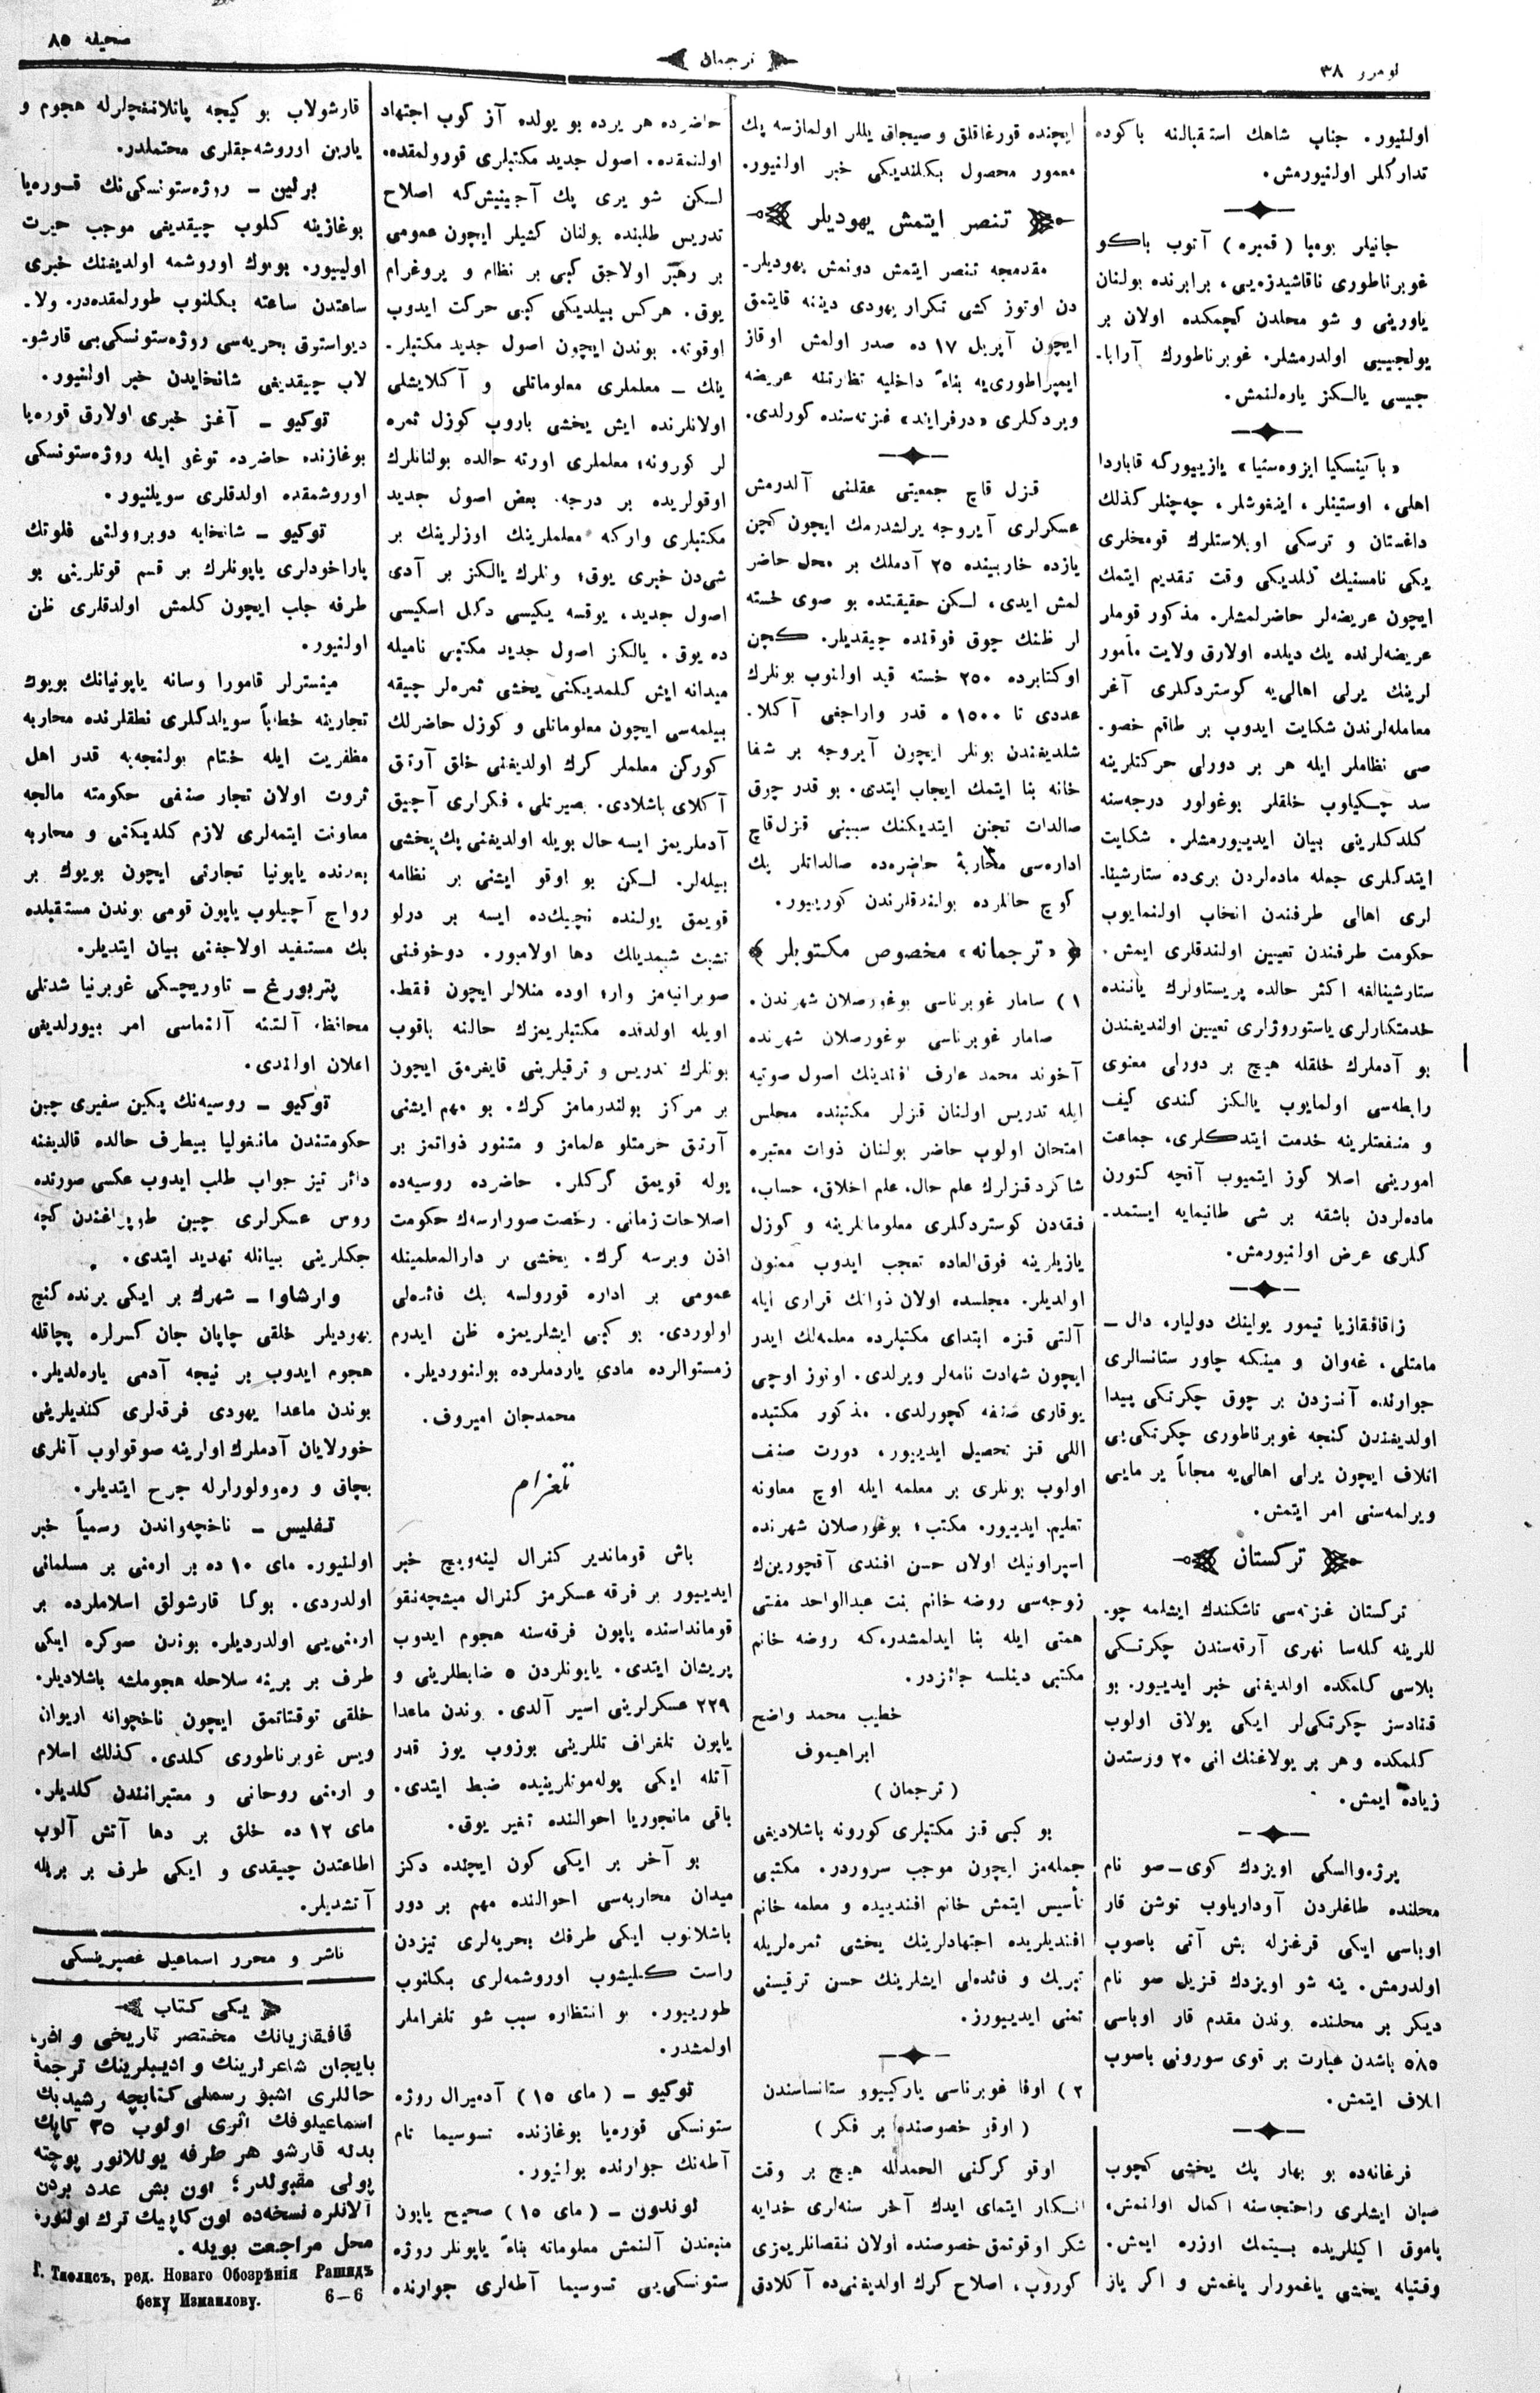 نومرو ٣٨
ترجمان
صحیفه ٨٥
اولنیور. جناب شاهك استقبالنه باكوده
تدارگلر اولنیورمش.
جانیلر بومبا (قمبره) آتوب باكو
غوبرناطوری ناقاشیدزه‌یی، برابرنده بولنان
یاورینی و شو محلدن گچمكده اولان بر
یولجیبی اولدرمشلر. غوبرناطورك آرابا۔
جیسی یالكز یاره‌لنمش.
«باكینسكیا ایزوه‌ستیا» یازییورکه قاباردا
اهلی، اوستینلر، اینغوشلر، چه‌چنلر كذلك
داغستان و ترسكی اوبلاستلرك قومخلری
یكی نامسنیك كلدیكی وقت تقدیم ایتمك
ایچون عریضه‌لر حاضرلمشلر. مذكور قوملر
عریضه‌لرنده یك دیلده اولارق ولایت مأمور
لرینك یرلی اهالی‌یه كوستردكلری آغر
معامله‌لرندن شكایت ایدوب بر طاقم خصو۔
صی نظاملر ایله هر بر دورلی حركتلرینه
سد چكیلوب خلقلر بوغولور درجه‌سنه
كلدكلرینی بیان ایدییورمشلر. شكایت
ایتدكلری جمله ماده‌لردن بری‌ده ستارشینا۔
لری اهالی طرفندن انخاب اولنمایوب
حكومت طرفندن تعیین اولندقلری ایمش.
ستارشینالغه اكثر حالده پریستاولرك یاننده
خدمتكارلری یاستوروژلری تعیین اولندیغندن
بو آدملرك خلقله هیچ بر دورلی معنوی
رابطه‌سی اولمایوب یالكز كندی كیف
و منفعتلرینه خدمت ایتدكلری، جماعت
امورینی اصلا كوز ایتمیوب آقچه كتورن
ماده‌لردن باشقه بر شی طانیمایه ایستمد۔
كلری عرض اولنیورمش.
زاقافقازیا تیمور یولینك دولیار، دال ـ
مامتلی، غه‌وان و مینكه چاور ستانسالری
جوارنده آندزدن بر چوق چكرتكی پیدا
اولدیغندن گنجه غوبرناطوری چكرتكی‌یی
اتلاف ایچون یرلی اهالی‌یه مجاناً یر مایی
ویرلمه‌سنی امر ایتمش.
تركستان
تركستان غزته‌سی تاشكندك ایشلمه چو۔
للرینه كله‌سا نهری آرقه‌سندن چكرتكی
بلاسی كلمكده اولدیغنی خبر ایدییور. بو
قنادسز چكرتكی‌لر ایكی یولاق اولوب
كلمكده و هر بر یولاغنك انی ٢٠ ورستدن
زیاده ایمش.
پرژه‌والسكی اویزدك كوی ـ صو نام
محلنده طاغلردن آوداریلوب توشن قار
اوباسی ایكی قرغزله بش آتی باصوب
اولدرمش. ینه شو اویزدك قزیل صو نام
دیكر بر محلنده بوندن مقدم قار اوباسی
٥٨٥ باشدن عبارت بر قوی سورونی باصوب
اتلاف ایتمش.
فرغانه‌ده بو بهار پك یخشی كچوب
صبان ایشلری راحتجاسنه اكمال اولنمش،
پاموق اكینلریده بیتمك اوزره ایمش.
وقتیله یخشی یاغمورلر یاغمش و اكر یاز
ایچنده قورغاقلق و صیجاق یللر اولمازسه پك
معمور محصول بكلندیكی خبر اولنیور.
تنصر ایتمش یهودیلر
مقدمجه تنصر ایتمش دونمش یهودیلر۔
دن اوتوز كشی تكرار یهودی دیننه قایتمق
ایچون آپریل ١٧ ده صدر اولمش اوقاز
ایمپراطوری‌یه بناءً داخلیه نظارتنه عریضه
ویردكلری «درفرایند» غزته‌سنده كورلدی.
قزل قاچ جمعیتی عقلنی آلدرمش
عسكرلری آیروجه یرلشدرمك ایچون كچن
یازده خاربینده ٢٥ آدملك بر محل حاضر
لمش ایدی، لكن حقیقتده بو صوی خسته
لر ظنك چوق فوقنده چیقدیلر. كچن
اوكتابرده ٢٥٠ خسته قید اولنوب بونلرك
عددی تا ١٥٠٠ ه قدر واراجغی آكلا۔
شلدیغندن بونلر ایچون آیروجه بر شفا
خانه بنا ایتمك ایجاب ایتدی. بو قدر چوق
صالدات تجنن ایتدیكنك سببنی قزل‌قاچ
اداره‌سی محاربهٔ حاضره‌ده صالداتلر پك
كوچ حالارده بولندقلرندن كورییور.
«ترجمانه» مخصوص مكتوبلر
١) سامار غوبرناسی بوغورصلان شهرندن.
صامار غوبرناسی بوغورصلان شهرنده
آخوند محمد عارف افندینك اصول صوتیه
ایله تدریس اولنان قزلر مكتبنده مجلس
امتحان اولوب حاضر بولنان ذوات معتبره
شاكرد قزلرك علم حال، علم اخلاق، حساب،
فقه‌دن كوستردكلری معلوماتلرینه و كوزل
یازیلرینه فوق‌العاده تعجب ایدوب ممنون
اولدیلر. مجلسده اولان ذواتك قراری ایله
آلتی قزه ابتدای مكتبلرده معلمه‌لك ایدر
ایچون شهادت نامه‌لر ویرلدی. اوتوز اوچی
یوقاری صنفه كچورلدی. مذكور مكتبده
اللی قز تحصیل ایدییور. دورت صنف
اولوب بونلری بر معلمه ایله اوچ معاونه
تعلیم ایدییور. مكتب؛ بوغورصلان شهرنده
اسپراونیك اولان حسن افندی آقچورین‌ك
زوجه‌سی روضه خانم بنت عبدالواحد مفتی
همتی ایله بنا ایدلمشدر، كه روضه خانم
مكتبی دینلسه جائزدر.
خطیب محمد واضح
ابراهیموف
(ترجمان)
بو كبی قز مكتبلری كورونه باشلادیغی
جمله‌مز ایچون موجب سروردر. مكتبی
تأسیس ایتمش خانم افندییده و معلمه خانم
افندیلریده اجتهادلرینك یخشی ثمره‌لریله
تبریك و فائده‌لی ایشلرینك حسن ترقیسنی
تمنی ایدییورز.
٢) اوفا غوبرناسی یاركییوو ستانساسندن
(اوقو خصوصنده بر فكر)
اوقو كركنی الحمدلله هیچ بر وقت
انكار ایتمای ایدك آخر سنه‌لری خدایه
شكر اوقوتمق خصوصنده اولان نقصانلریمزی
كوروب، اصلاح كرك اولدیغنی‌ده آكلادق
حاضرده هر یرده بو یولده آز كوب اجتهاد
اولنمقده. اصول جدید مكتبلری قورولمقده.
لكن شو یری پك آجینیش‌كه اصلاح
تدریس طلبنده بولنان كشیلر ایچون عمومی
بر رهبر اولاجق كبی بر نظام و پروغرام
یوق. هركس بیلدیكی كبی حركت ایدوب
اوقوته. بوندن ایچون اصول جدید مكتبلر۔
ینك ـ معلملری معلوماتلی و آكلایشلی
اولانلرنده ایش یخشی باروب كوزل ثمره
لر كورونه؛ معلملری اورته حالده بولنانلرك
اوقولریده بر درجه. بعض اصول جدید
مكتبلری واركه معلملرینك اوزلرینك بر
شی‌دن خبری یوق؛ ونلرك یالكز بر آدی
اصول جدید، یوقسه یكیسی دكل اسكیسی
ده یوق. یالكز اصول جدید مكتبی نامیله
میدانه ایش كلمدیكنی یخشی ثمره‌لر چیقه
بیلمه‌سی ایچون معلوماتلی و كوزل حاضرلك
كورگن معلملر كرك اولدیغنی خلق آرتق
آكلای باشلادی. بصیرتلی، فكراری آچیق
آدملریمز ایسه حال بویله اولدیغنی پك یخشی
بیله‌لر. لكن بو اوقو ایشنی بر نظامه
قویمق یولنده نچیك‌ده ایسه بر درلو
تشبث شیمدیلك دها اولامیور. دوخوفنی
صوبرانیه‌مز وار؛ اوده منلالر ایچون فقط.
اویله اولدقده مكتبلریمزك حالنه باقوب
بونلرك تدریس و ترقیلرینی قایغرمق ایچون
بر مركز بولندرمامز كرك. بو مهم ایشنی
آرتق حرمتلو علمامز و متنور ذواتمز بر
یوله قویمق گركلر. حاضرده روسیه‌ده
اصلاحات زمانی. رخصت صورارسه‌ك حكومت
اذن ویرسه كرك. یخشی بر دارالمعلمینله
عمومی بر اداره قورولسه پك فائده‌لی
اولوردی. بو كبی ایشلریمزه ظن ایدرم
زمستوالرده مادی یاردملرده بولنوردیلر.
محمدجان امیروف.
تلغرام
باش قوماندیر كنرال لینه‌ویچ خبر
ایدییور بر فرقه عسكرمز كنرال میشچه‌نقو
قوماندا‌سنده یاپون فرقه‌سنه هجوم ایدوب
پریشان ایتدی. یاپونلردن ٥ ضابطلرینی و
٢٢٩ عسكرلرینی اسیر آلدی. وندن ماعدا
یاپون تلغراف تللرینی بوزوب یوز قدر
آتله ایكی پوله‌موتلرینیده ضبط ایتدی.
باقی مانجوریا احوالنده تغیر یوق.
بو آخر بر ایكی كون ایچنده دكز
میدان محاربه‌سی احوالنده مهم بر دور
باشلانوب ایكی طرفك بحریه‌لری تیزدن
راست كلیشوب اوروشمه‌لری بكلنوب
طورییور. بو انتظاره سبب شو تلغراملر
اولمشدر.
توكیو ـ (مای ١٥) آدمیرال روژه
ستونسكی قوره‌یا بوغازنده تسوسیما نام
آطه‌نك جوارنده بولنیور.
لوندون ـ (مای ١٥) صحیح یاپون
منبعندن آلنمش معلوماته بناءً یاپونلر روژه
ستونسكی‌یی تسوسیما آطه‌لری جوارنده
قارشولاب بو كیجه پانلاتغچلرله هجوم و
یارین اوروشه‌جقلری محتملدر.
برلین ـ روژه‌ستونسكی‌نك قوره‌یا
بوغازینه كلوب چیقدیغی موجب حیرت
اولییور. بویوك اوروشمه اولدیغنك خبری
ساعتدن ساعته بكلنوب طورلمقده‌در. ولا۔
دیواستوق بحریه‌سی روژه‌ستونسكی‌یی قارشو۔
لاب چیقدیغی شانخایدن خبر اولنیور.
توكیو ـ آغز خبری اولارق قوره‌یا
بوغازنده حاضرده توغو ایله روژه‌ستونسكی
اوروشمقده اولدقلری سویلنیور.
توكیو ـ شانخایه دوبروولنی فلوتك
پاراخودلری یاپونلرك بر قسم قوتلرینی بو
طرفه جلب ایچون كلمش اولدقلری ظن
اولنیور.
مینسترلر قامورا وسانه یاپونیانك بویوك
تجارینه خطاباً سویلدكلری نطقلرنده محاربه
مظفریت ایله ختام بولنجه‌یه قدر اهل
ثروت اولان تجار صنفی حكومته مالجه
معاونت ایتمه‌لری لازم كلدیكنی و محاربه
بعدنده یاپونیا تجارتی ایچون بویوك بر
رواج آچیلوب یاپون قومی بوندن مستقبلده
بك مستفید اولاجغنی بیان ایتدیلر.
پتربورغ ـ تاوریچسكی غوبرنیا شدتلی
محافظه آلتنه آلنماسی امر بیورلدیغی
اعلان اولندی.
توكیو ـ روسیه‌نك پكین سفیری چین
حكومتندن مانغولیا بیطرف حالده قالدیغنه
دائر تیز جواب طلب ایدوب عكسی صورتده
روس عسكرلری چین طوپراغندن كچه
جكلرینی بیانله تهدید ایتدی.
وارشاوا ـ شهرك بر ایكی یرنده كنچ
یهودیلر خلقی چاپان جان كسرلره پچاقله
هجوم ایدوب بر نیجه آدمی یاره‌لدیلر.
بوندن ماعدا یهودی فرقه‌لری كندیلرینی
خورلایان آدملرك اوارینه صوقولوب آنلری
بچاق و ره‌وولورلرله جرح ایتدیلر.
تفلیس ـ ناخچه‌واندن رسمیاً خبر
اولنیور. مای ١٠ ده بر ارمنی بر مسلمانی
اولدردی. بوكا قارشولق اسلاملرده بر
ارمنی‌یی اولدردیلر. بوندن صوكره ایكی
طرف بر برینه سلاحله هجوملشه باشلادیلر.
خلقی توقتاتمق ایچون ناخچوانه اریوان
ویس غوبرناطوری كلدی. كذلك اسلام
و ارمنی روحانی و معتبرانندن كلدیلر.
مای ١٢ ده خلق بر دها آتش آلوب
اطاعتدن چیقدی و ایكی طرف بر بریله
آتشدیلر.
ناشر و محرر اسماعیل غصپرینسكی
یكی كتاب
قافقازیانك مختصر تاریخی و اذر۔
بایجان شاعرلرینك و ادیبلرینك ترجمهٔ
حاللری اشبو رسملی كتابچه رشیدبك
اسماعیلوفك اثری اولوب ٣٥ كاپك
بدله قارشو هر طرفه یوللانور پوچته
پولی مقبولدر؛ اون بش عدد بردن
آلانلره نسخه‌ده اون كاپیك ترك اولنور.
محل مراجعت بویله.
Г. Тифлисъ, ред. Новаго Обозрѣнія Рашидъ
беку Измаилову. 6—6